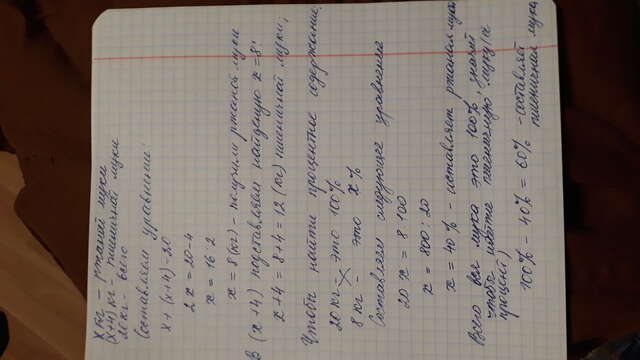 х кг – ржаной муки
(х+4) кг – пшеничной муки
20 кг – всего
Составляем уравнение:
х + (х+4) = 20
2 х = 20-4
х = 16:2
х = 8 (кг) – получили ржаной муки
В (х+4) подставляем найденую х=8:
х+4 = 8+4 = 12 (кг) пшеничной муки,
Чтобы найти процентное содержание:
20 кг – это 100%
8 кг – это х%
Составляем следующее уравнение
20 х = 8·100
х = 800:20
х = 40% – иставляет ржаная мука
Всего вся мука это 100%, значит
чтобы найти пшеничную муку (её
процент)
100% – 40% = 60% – составляет
пшеничная мука